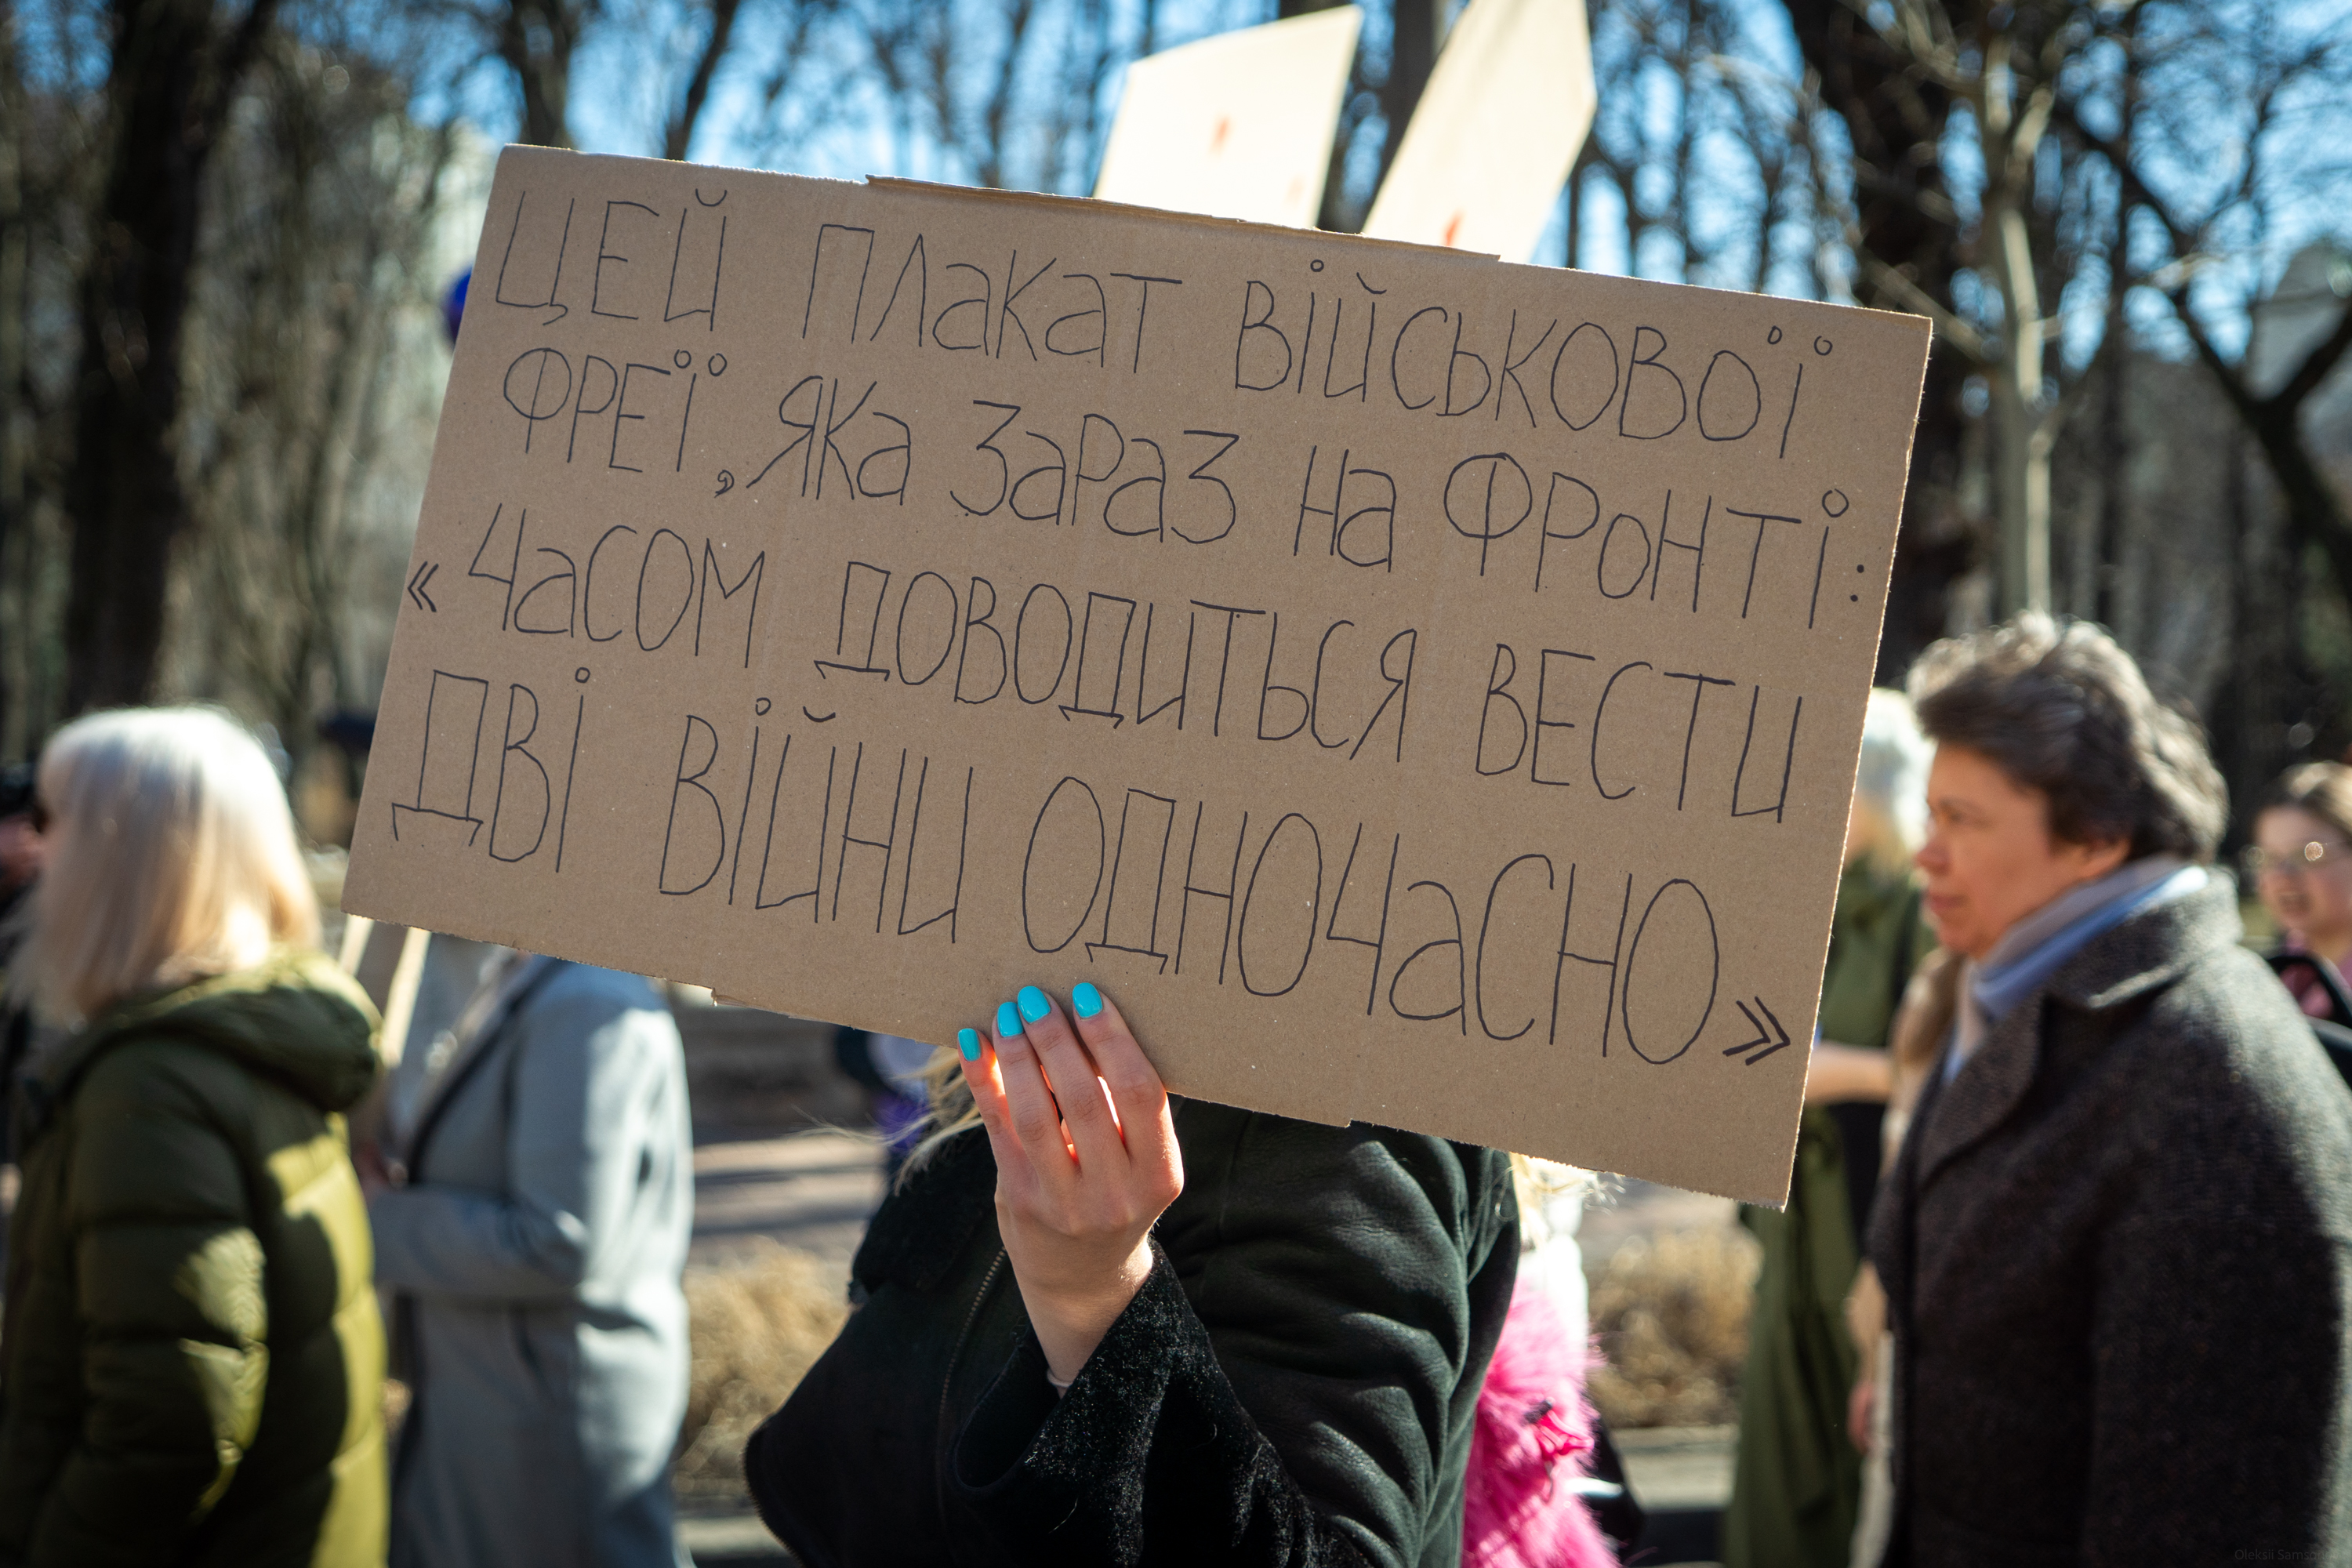 ЦЕЙ ПЛАКАТ ВІЙСЬКОВОЇ
ФРЕЇ, ЯКА ЗАРАЗ НА ФРОНТІ:
«ЧАСОМ ДОВОДИТЬСЯ ВЕСТИ
ДВІ ВІЙНИ ОДНОЧАСНО»
Oleksii Samsonov